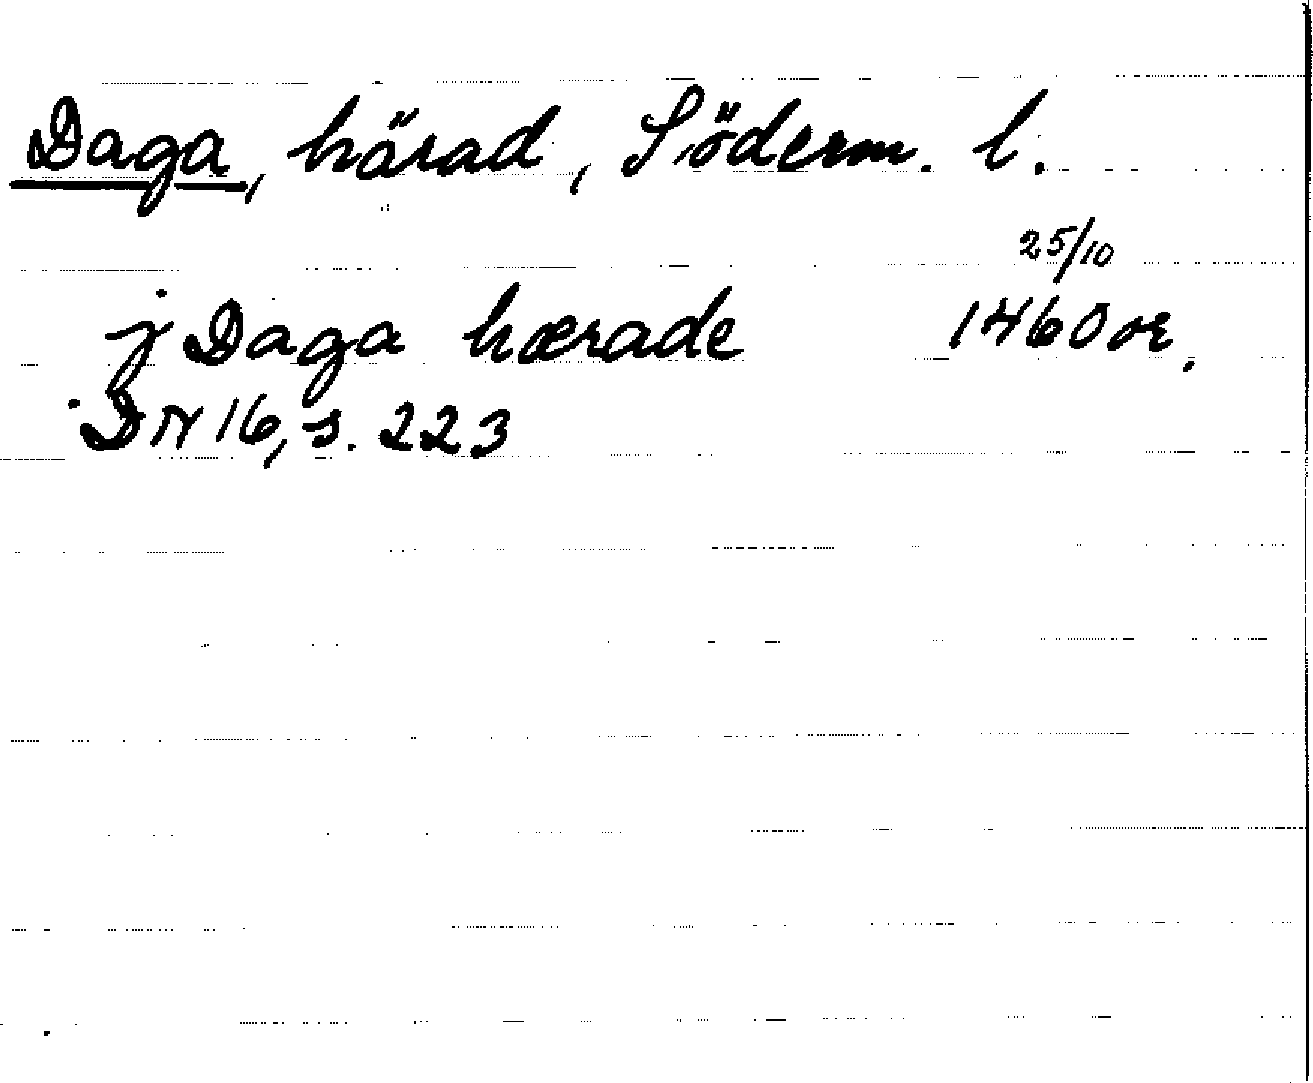 Daga, härad, Söderm. l.
25/10
j Daga hærade 1460 or.
DN 16, s. 223